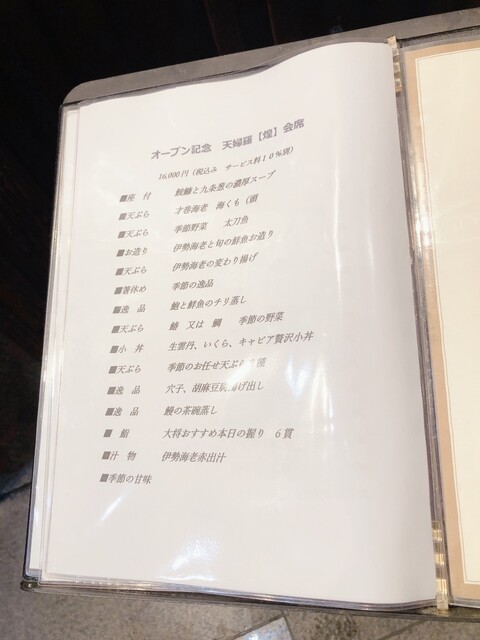 オープン記念　天婦羅【煌】会席
16,000円（税込み　サービス料10%別）
■座　付　鮟鱇と九条葱の濃厚スープ
■天ぷら　才巻海老　海くも（頭
■天ぷら　季節野菜　太刀魚
■お造り　伊勢海老と旬の鮮魚お造り
■天ぷら　伊勢海老の変わり揚げ
■箸休め　季節の逸品
■逸　品　鮑と鮮魚のチリ蒸し
■天ぷら　鰆　又は　鯛　季節の野菜
■小　丼　生雲丹、いくら、キャビア贅沢小丼
■天ぷら　季節のお任せ天ぷら
■逸　品　穴子、胡麻豆腐揚げ出し
■逸　品　鰻の茶碗蒸し
■　鮨　大将おすすめ本日の握り　6貫
■汁　物　伊勢海老赤出汁
■季節の甘味